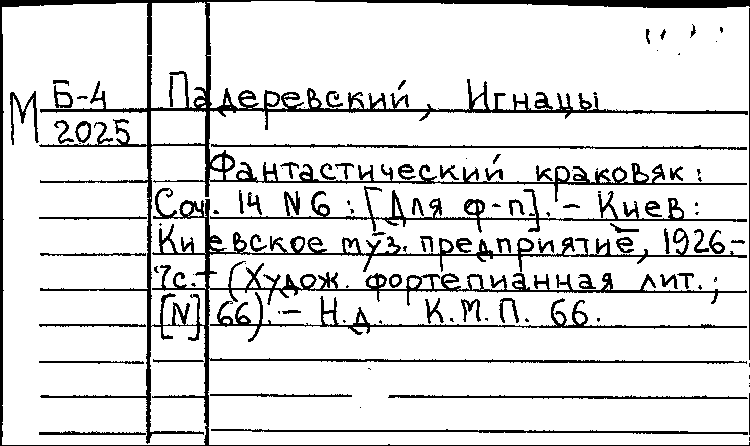 М Б-4 Падеревский, Игнацы
2025
Фантастический краковяк:
Соч. 14 N6 : [Для ф-п]. – Киев:
Киевское муз. предприятие, 1926.–
7с.– (Худож. фортепианная лит.;
[N] 66). – Н.д. К.М.П. 66.